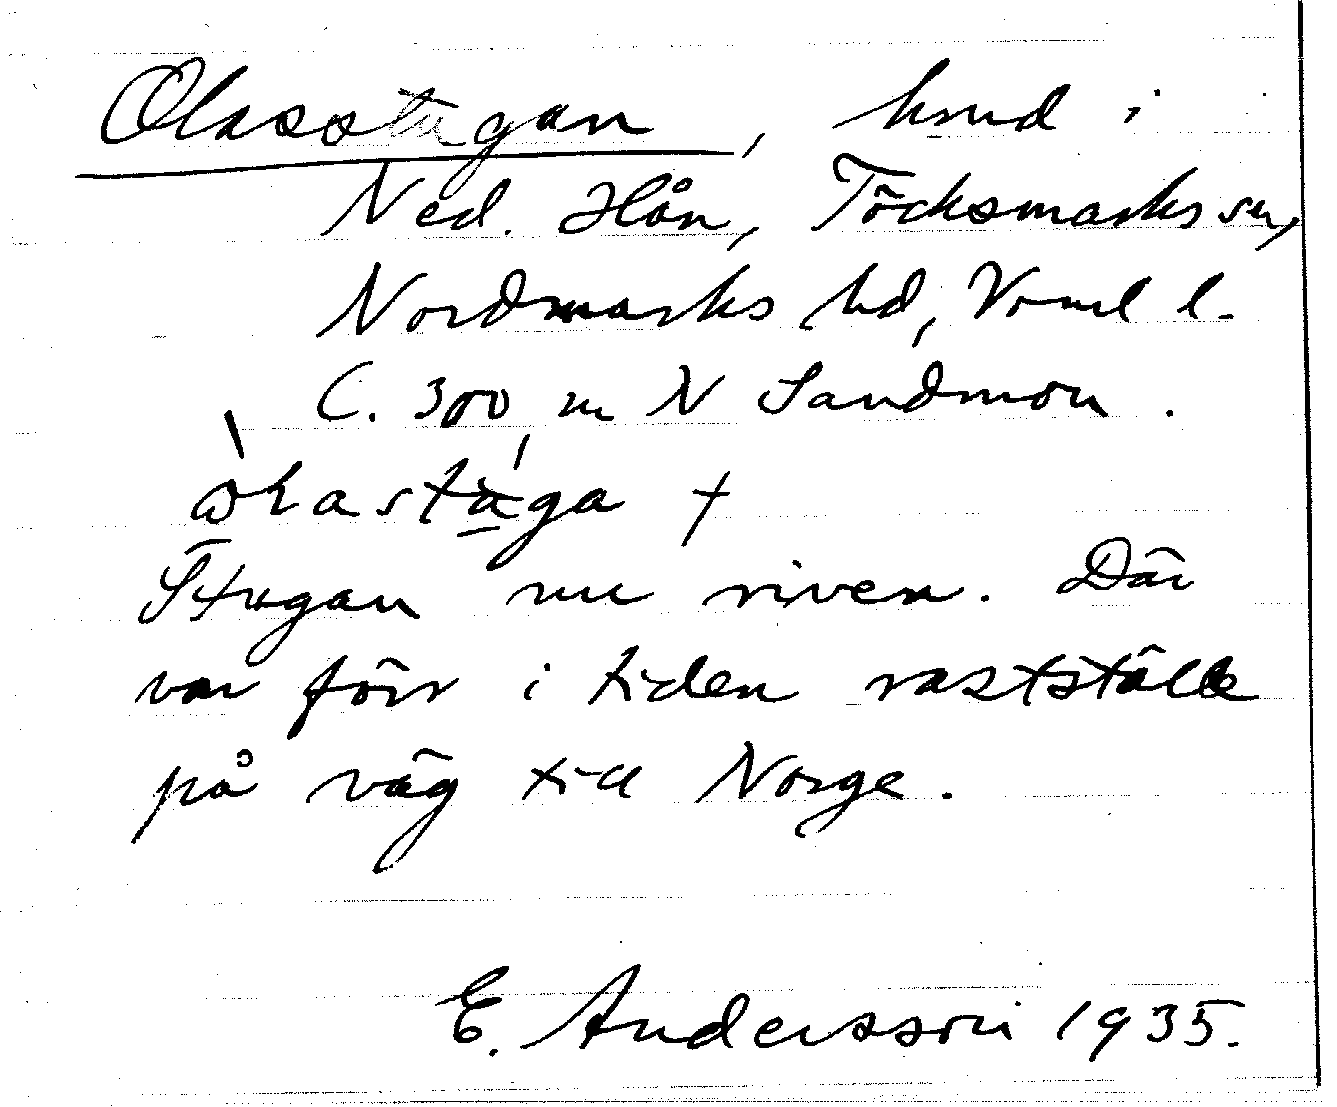 Olasstugan, hmd i
Ned. Hån, Töcksmarks sn,
Nordmarks hd, Vrml l.
C. 300 m N Sandmon.
Stugan nu riven. Där
var förr i tiden rastställe
på väg till Norge.
E. Andersson 1935.